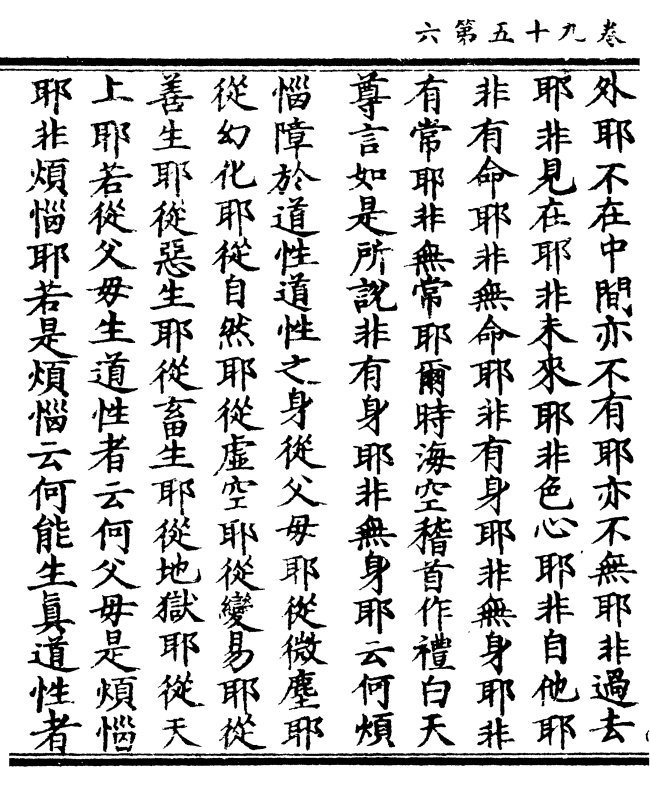 卷九十五第六
外耶不在中間亦不有耶亦不無耶非過去
耶非見在耶非未來耶非色心耶非自他耶
非有命耶非無命耶非有身耶非無身耶非
有常耶非無常耶爾時海空稽首作禮白天
尊言如是所說非有身耶非無身耶云何煩
惱障於道性道性之身從父母耶從微塵耶
從幻化耶從自然耶從虛空耶從變易耶從
善生耶從惡生耶從畜生耶從地獄耶從天
上耶若從父母生道性者云何父母是煩惱
耶非煩惱耶若是煩惱云何能生真道性者